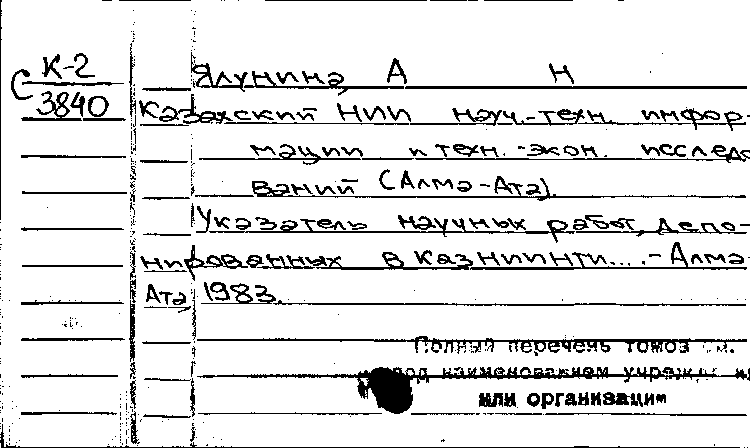 К-2
С
3840
Ялунина, А Н
Казахский НИИ науч.-техн. инфор-
мации и техн.-экон. исследо
ваний (Алма-Ата).
Указатель научных работ, депо-
нированных в КазНИИНТИ.... - Алма-
Ата, 1983.
Полный перечень томов см.
под наименованием учрежд.
или организации